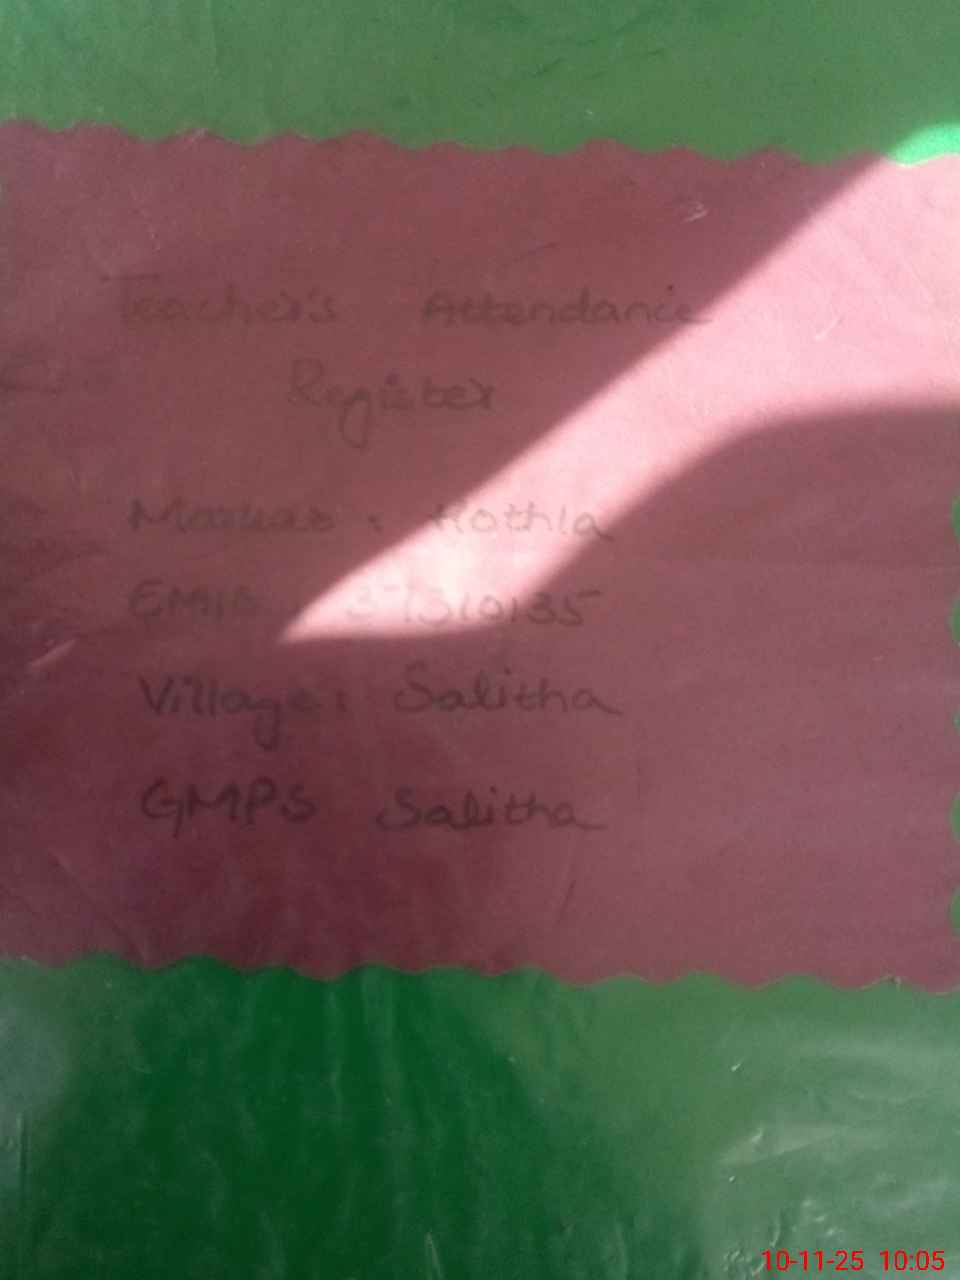 Teacher's Attendance
Register
Markaz : Kothla
EMIS : 37310135
Village : Salitha
GMPS Salitha
10-11-25 10:05